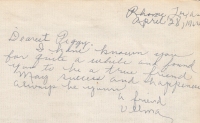 April 28, 
Dearest Piggy
I have known you
for quite a while and found
you to be a true friend
May success and happiness
always be yours
A friend
Velma